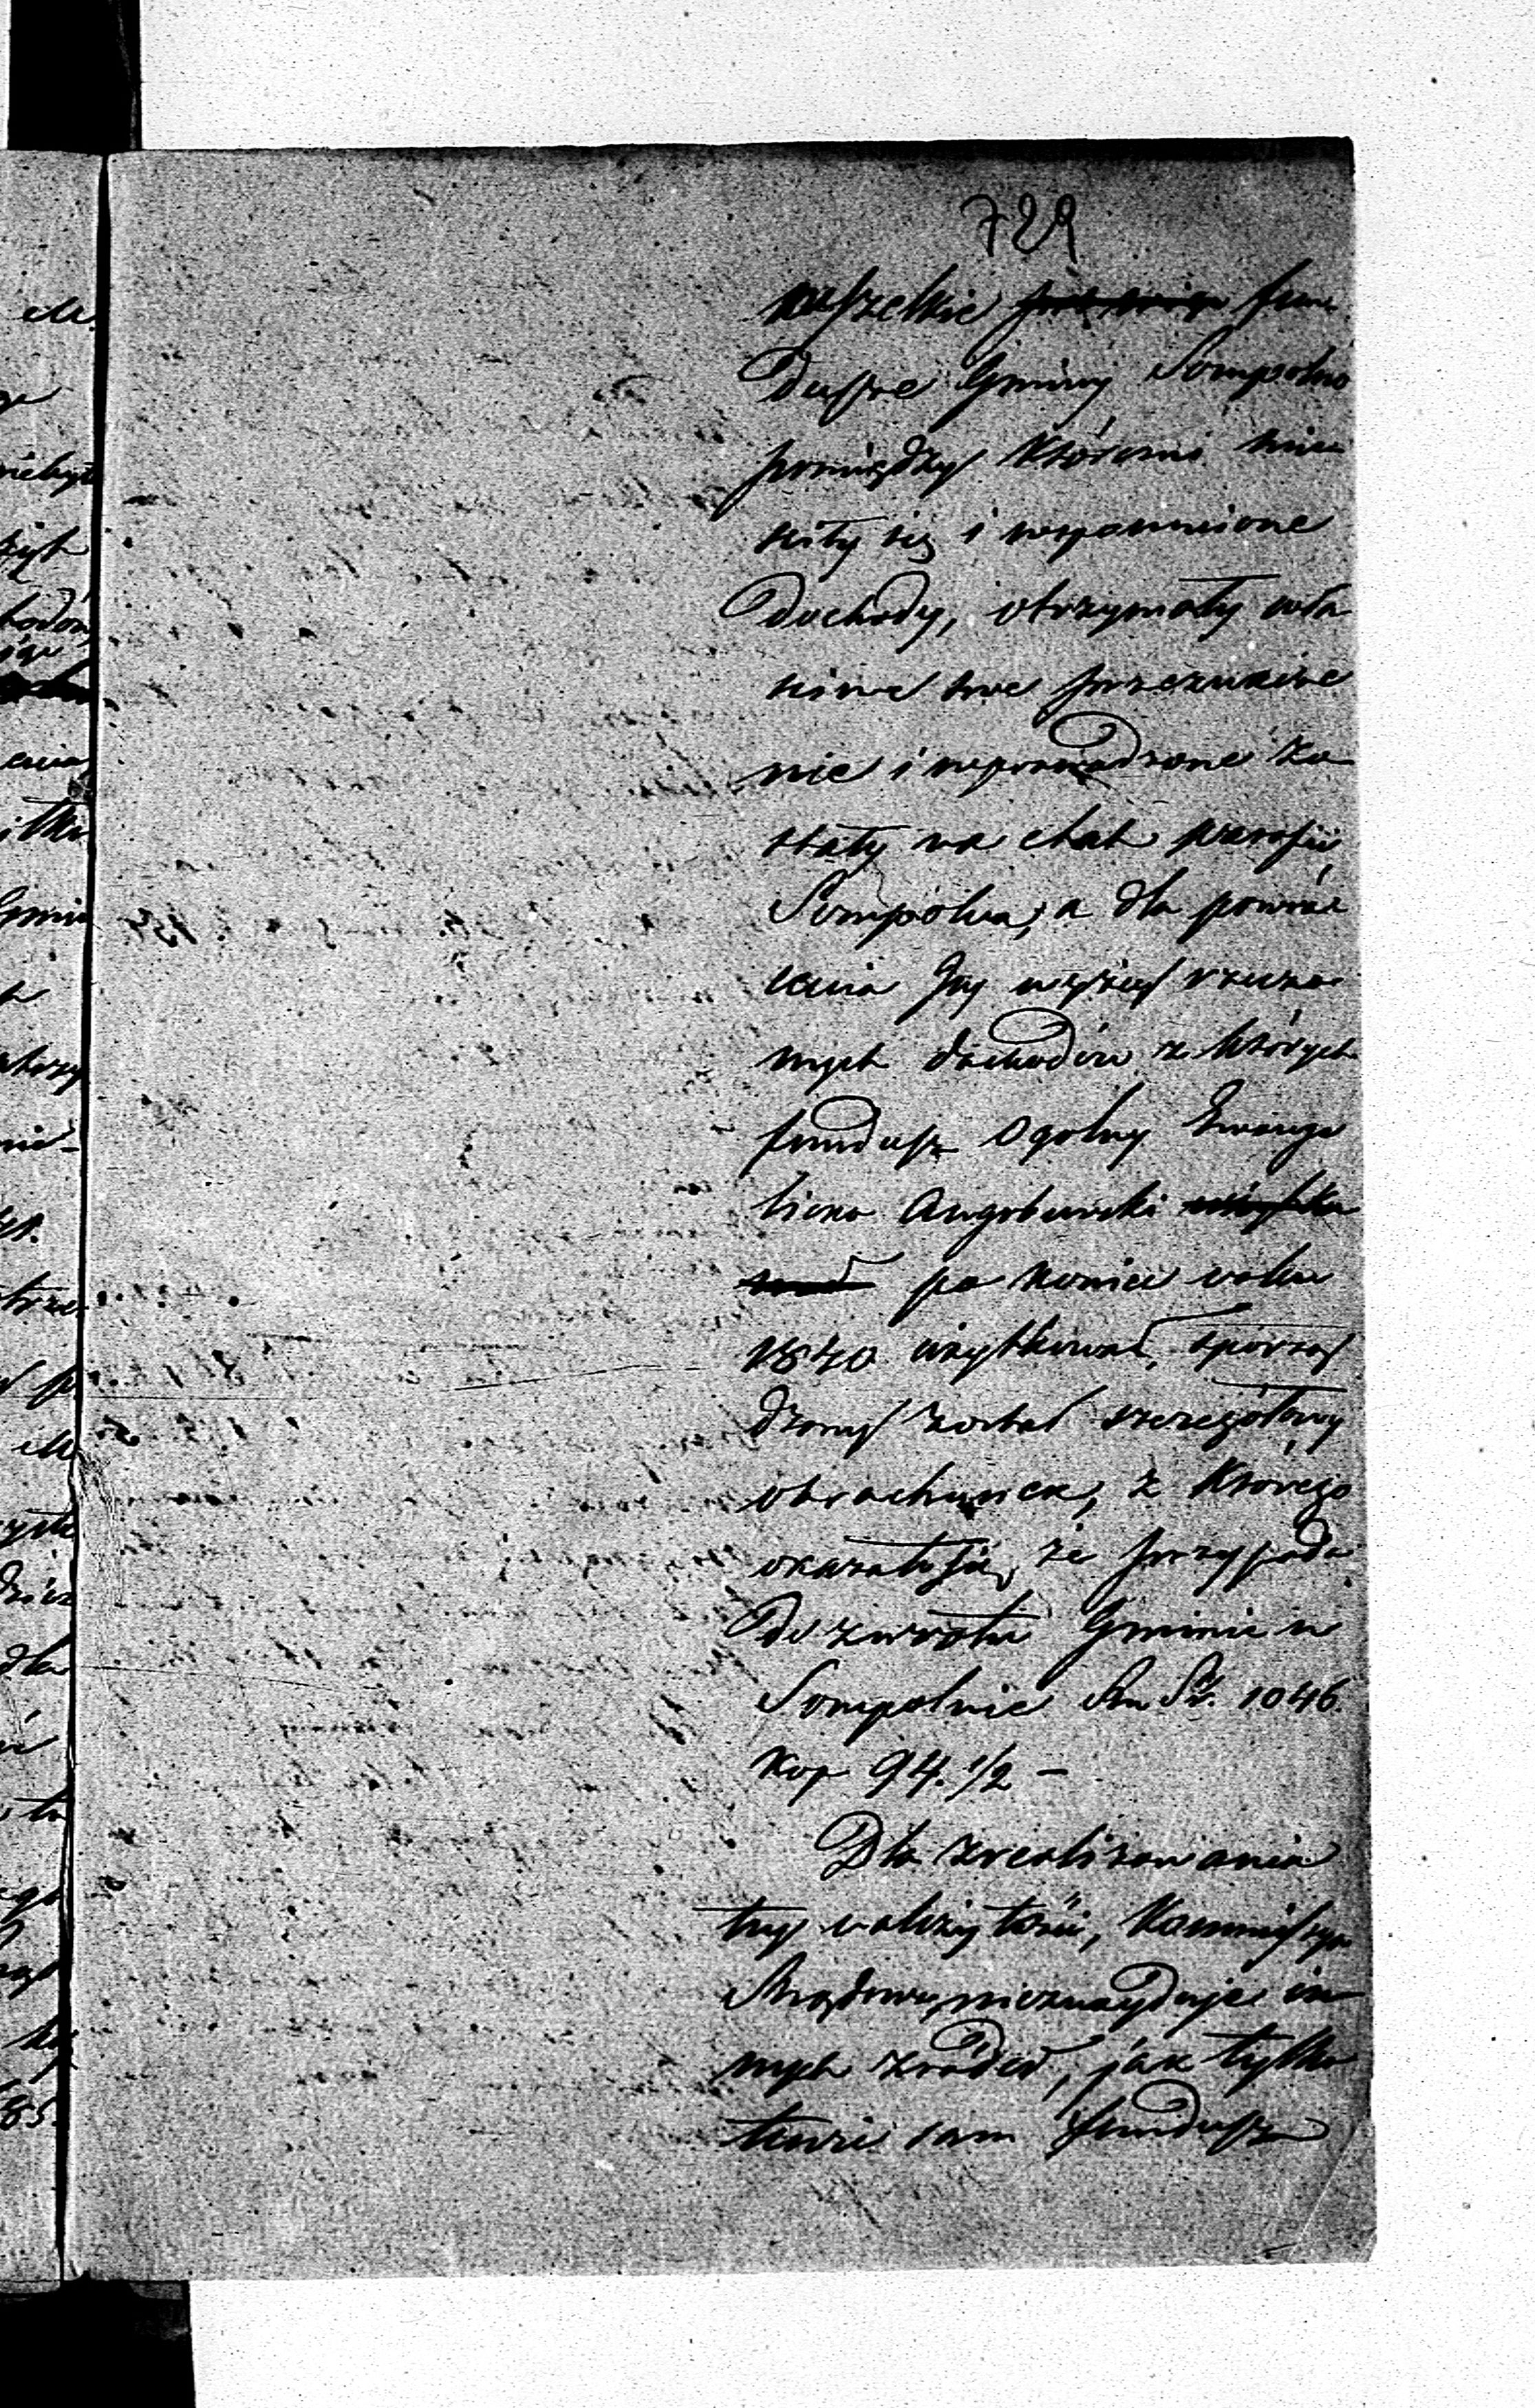 729
wszelkie fun
dusze Gminy Sompolno
pomiędzy któremi mie
ściły się i wspomnione
dochody, otrzymały wła
ściwe swe przeznacze
nie i wprowadzone zo
stały na etat parafii
Sompolna, a dla powró
cenia Jej wyżej rzeczo
nych dochodów z których
fundusz ogolny Ewange
licko Augsburski
po koniec roku
1840 użytkował, sporzą
dzony został szczegółowy
obrachunek, z którego
okazało się, że przypada
do zwrotu Gminie w
Sompolnie Ru Sr. 1046.
kop 94. 1/2 –
Dla zrealizowania
tej należytości, Kommissya
Rządowa nieznayduje in
nych zródeł, jak tylko
tenże sam fundusz